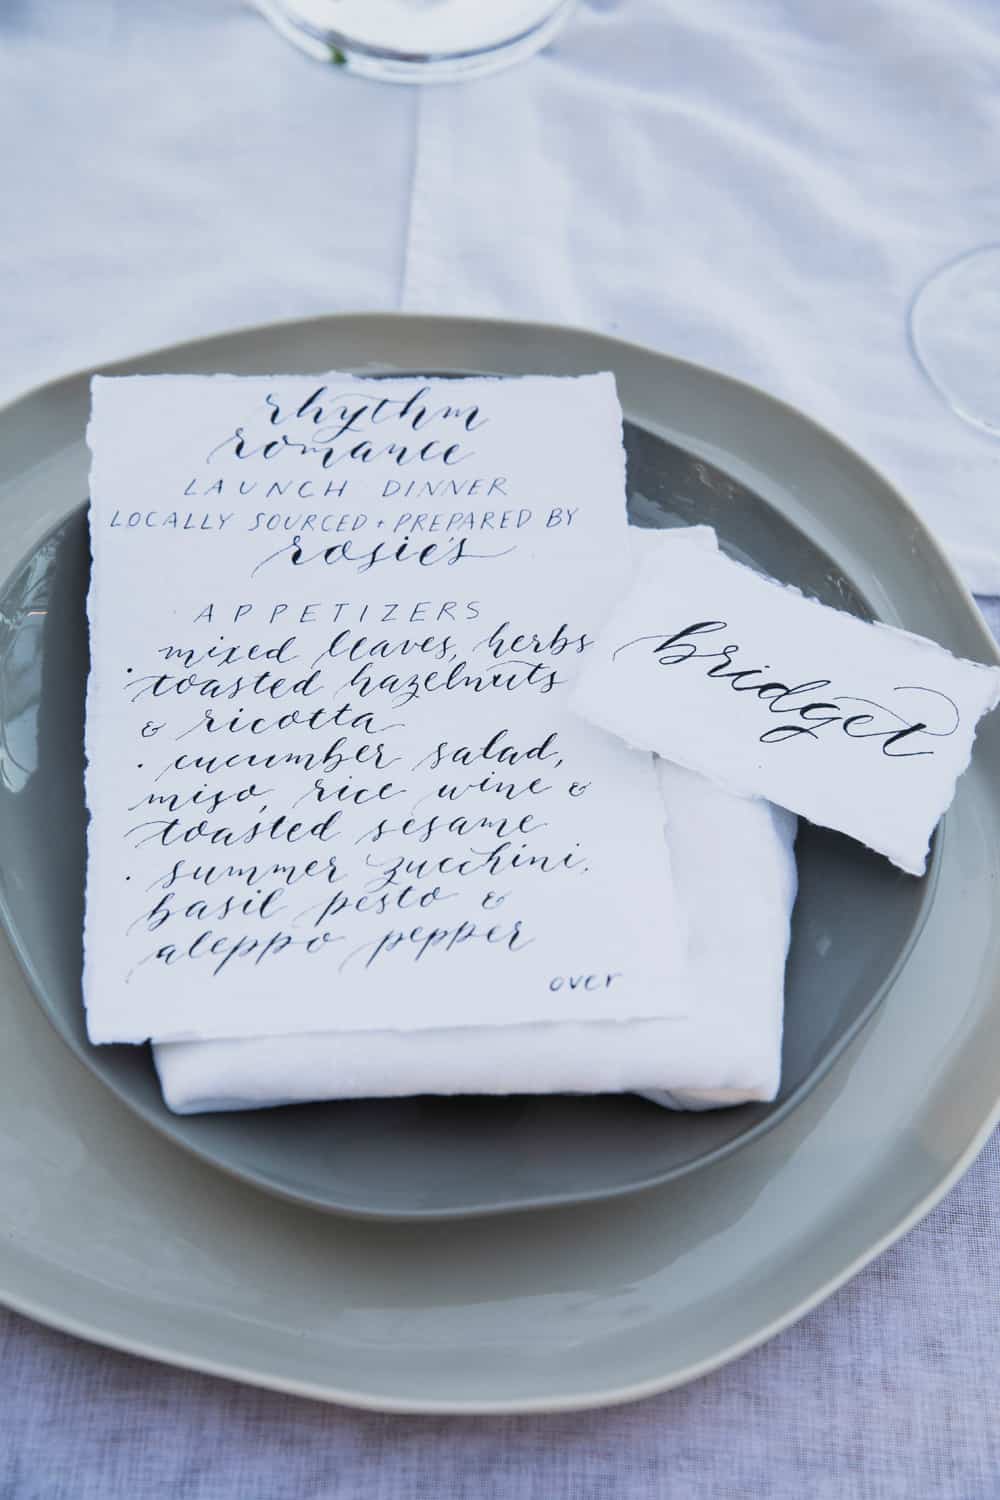 rhythm
romance
LAUNCH DINNER
LOCALLY SOURCED + PREPARED BY
rosie's
APPETIZERS
· mixed leaves, herbs
toasted hazelnuts
& ricotta
· cucumber salad,
miso, rice wine &
toasted sesame
· summer zucchini,
basil pesto &
aleppo pepper
over
bridget